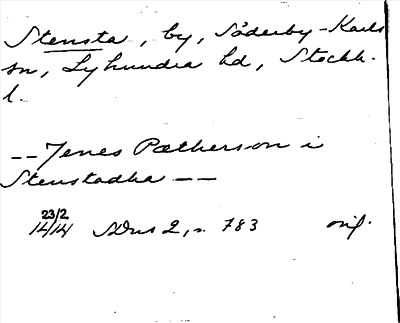 Stensta, by, Söderby-Karls
sn, Lyhundra hd, Stockh.
l.
-- Jenes Pætherson i
Stenstadha --
23/2
14/14 SDns 2, s. 783 orig.